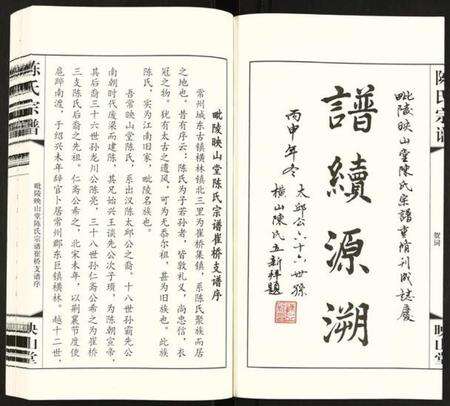 陈氏宗谱
贺词
映山堂
毗陵映山堂陈氏宗譜重修刊成誌慶
譜續源溯
丙申年冬
太邱公六十六世孫
横山陳氏五新拜題
毗陵映山堂陈氏宗谱崔桥支谱序
常州城东古镇横林镇北三里为崔桥集镇，系陈氏聚族而居
之地也。昔有序云：陈氏为子若孙者，皆敦礼义，尚忠信，衣
冠之物，犹有太古之遗风，可为无忝尔祖，甚为旧族也。此族
陈氏，实为江南旧家，毗陵名族也。
吾常映山堂陈氏，系出汉陈太邱公之裔，十八世孙霸先公
南朝时代废梁而建陈，其兄始兴王谈先公次子顼，为陈朝宣帝，
其后裔三十六世孙龙川公陈亮，三十八世孙仁斋公希之为崔桥
三支陈氏后裔之先祖。仁斋公希之，北宋末年，以荆襄节度使
扈跸南渡，于绍兴末年辞官卜居常州郡东巨镇横林。越十二世，
陈氏宗谱
毗陵映山堂陈氏宗谱崔桥支谱序
映山堂